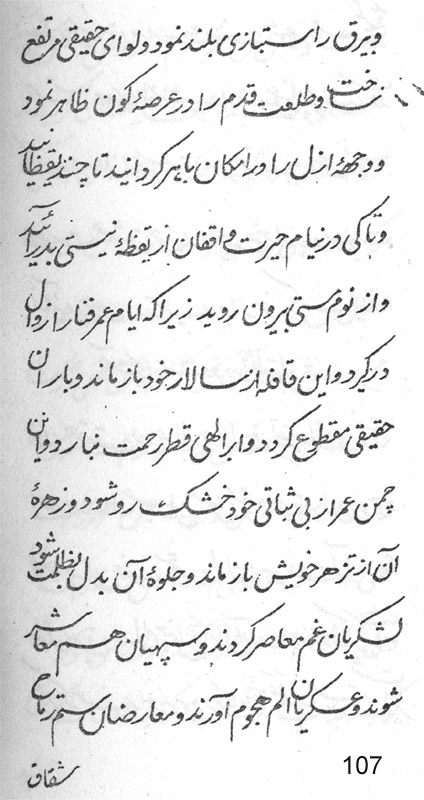 و بیرق راستبازی بلند نمود و لوای حقیقی مرتفع
ساخت و طلعت قدم را در عرصهٔ کون ظاهر نمود
و وجههٔ ازل را در امکان باهر گردانید تا چند یقظانید
و تا کی در نیام حیرت واقفان از یقظهٔ نیستی بدر آئید
و از نوم مستی بیرون روید زیرا که ایام عمر قنار از وال
در گیرد و این قافله از سالار خود باز ماند و باران
حقیقی مقطوع گردد و ابر الهی قطر رحمت نبارد و این
چمن عمر از بی ثباتی خود خشک رو شود و زهرهٔ
آن از تزهر خویش باز ماند و جلوهٔ آن بدل بظلمت شود
لشکریان غم معاصر کردند و سپهیان هم معاشر
شوند و عسکریان الم هجوم آورند و معارضان ستم رماح
شقاق
107